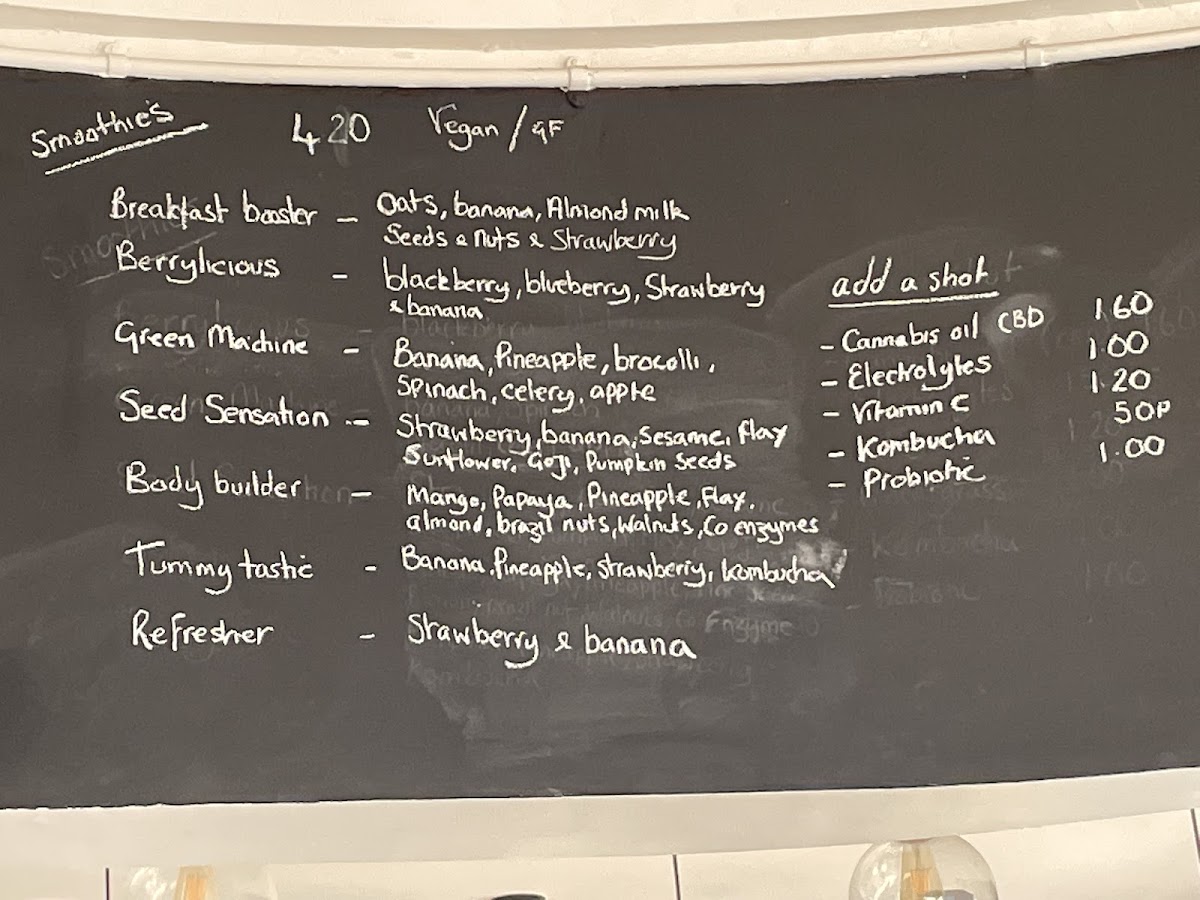 Smoothie's 4 20 Vegan / GF
Breakfast booster - Oats, banana, Almond milk
Seeds & nuts & Strawberry
Berrylicious - blackberry, blueberry, Strawberry
& banana
Green Machine - Banana, Pineapple, brocolli,
Spinach, celery, apple
Seed Sensation - Strawberry, banana, Sesame, flax
Sunflower, Goji, Pumpkin Seeds
Body builder - Mango, Papaya, Pineapple, Flax,
almond, brazil nuts, Walnuts, Co enzymes
Tummy tastic - Banana, Pineapple, strawberry, kombucha
Refresher - Strawberry & banana
add a shot
- Cannabis oil CBD 1.60
- Electrolytes 1.00
- Vitamin C 1.20
- Kombucha 50P
- Probiotic 1.00